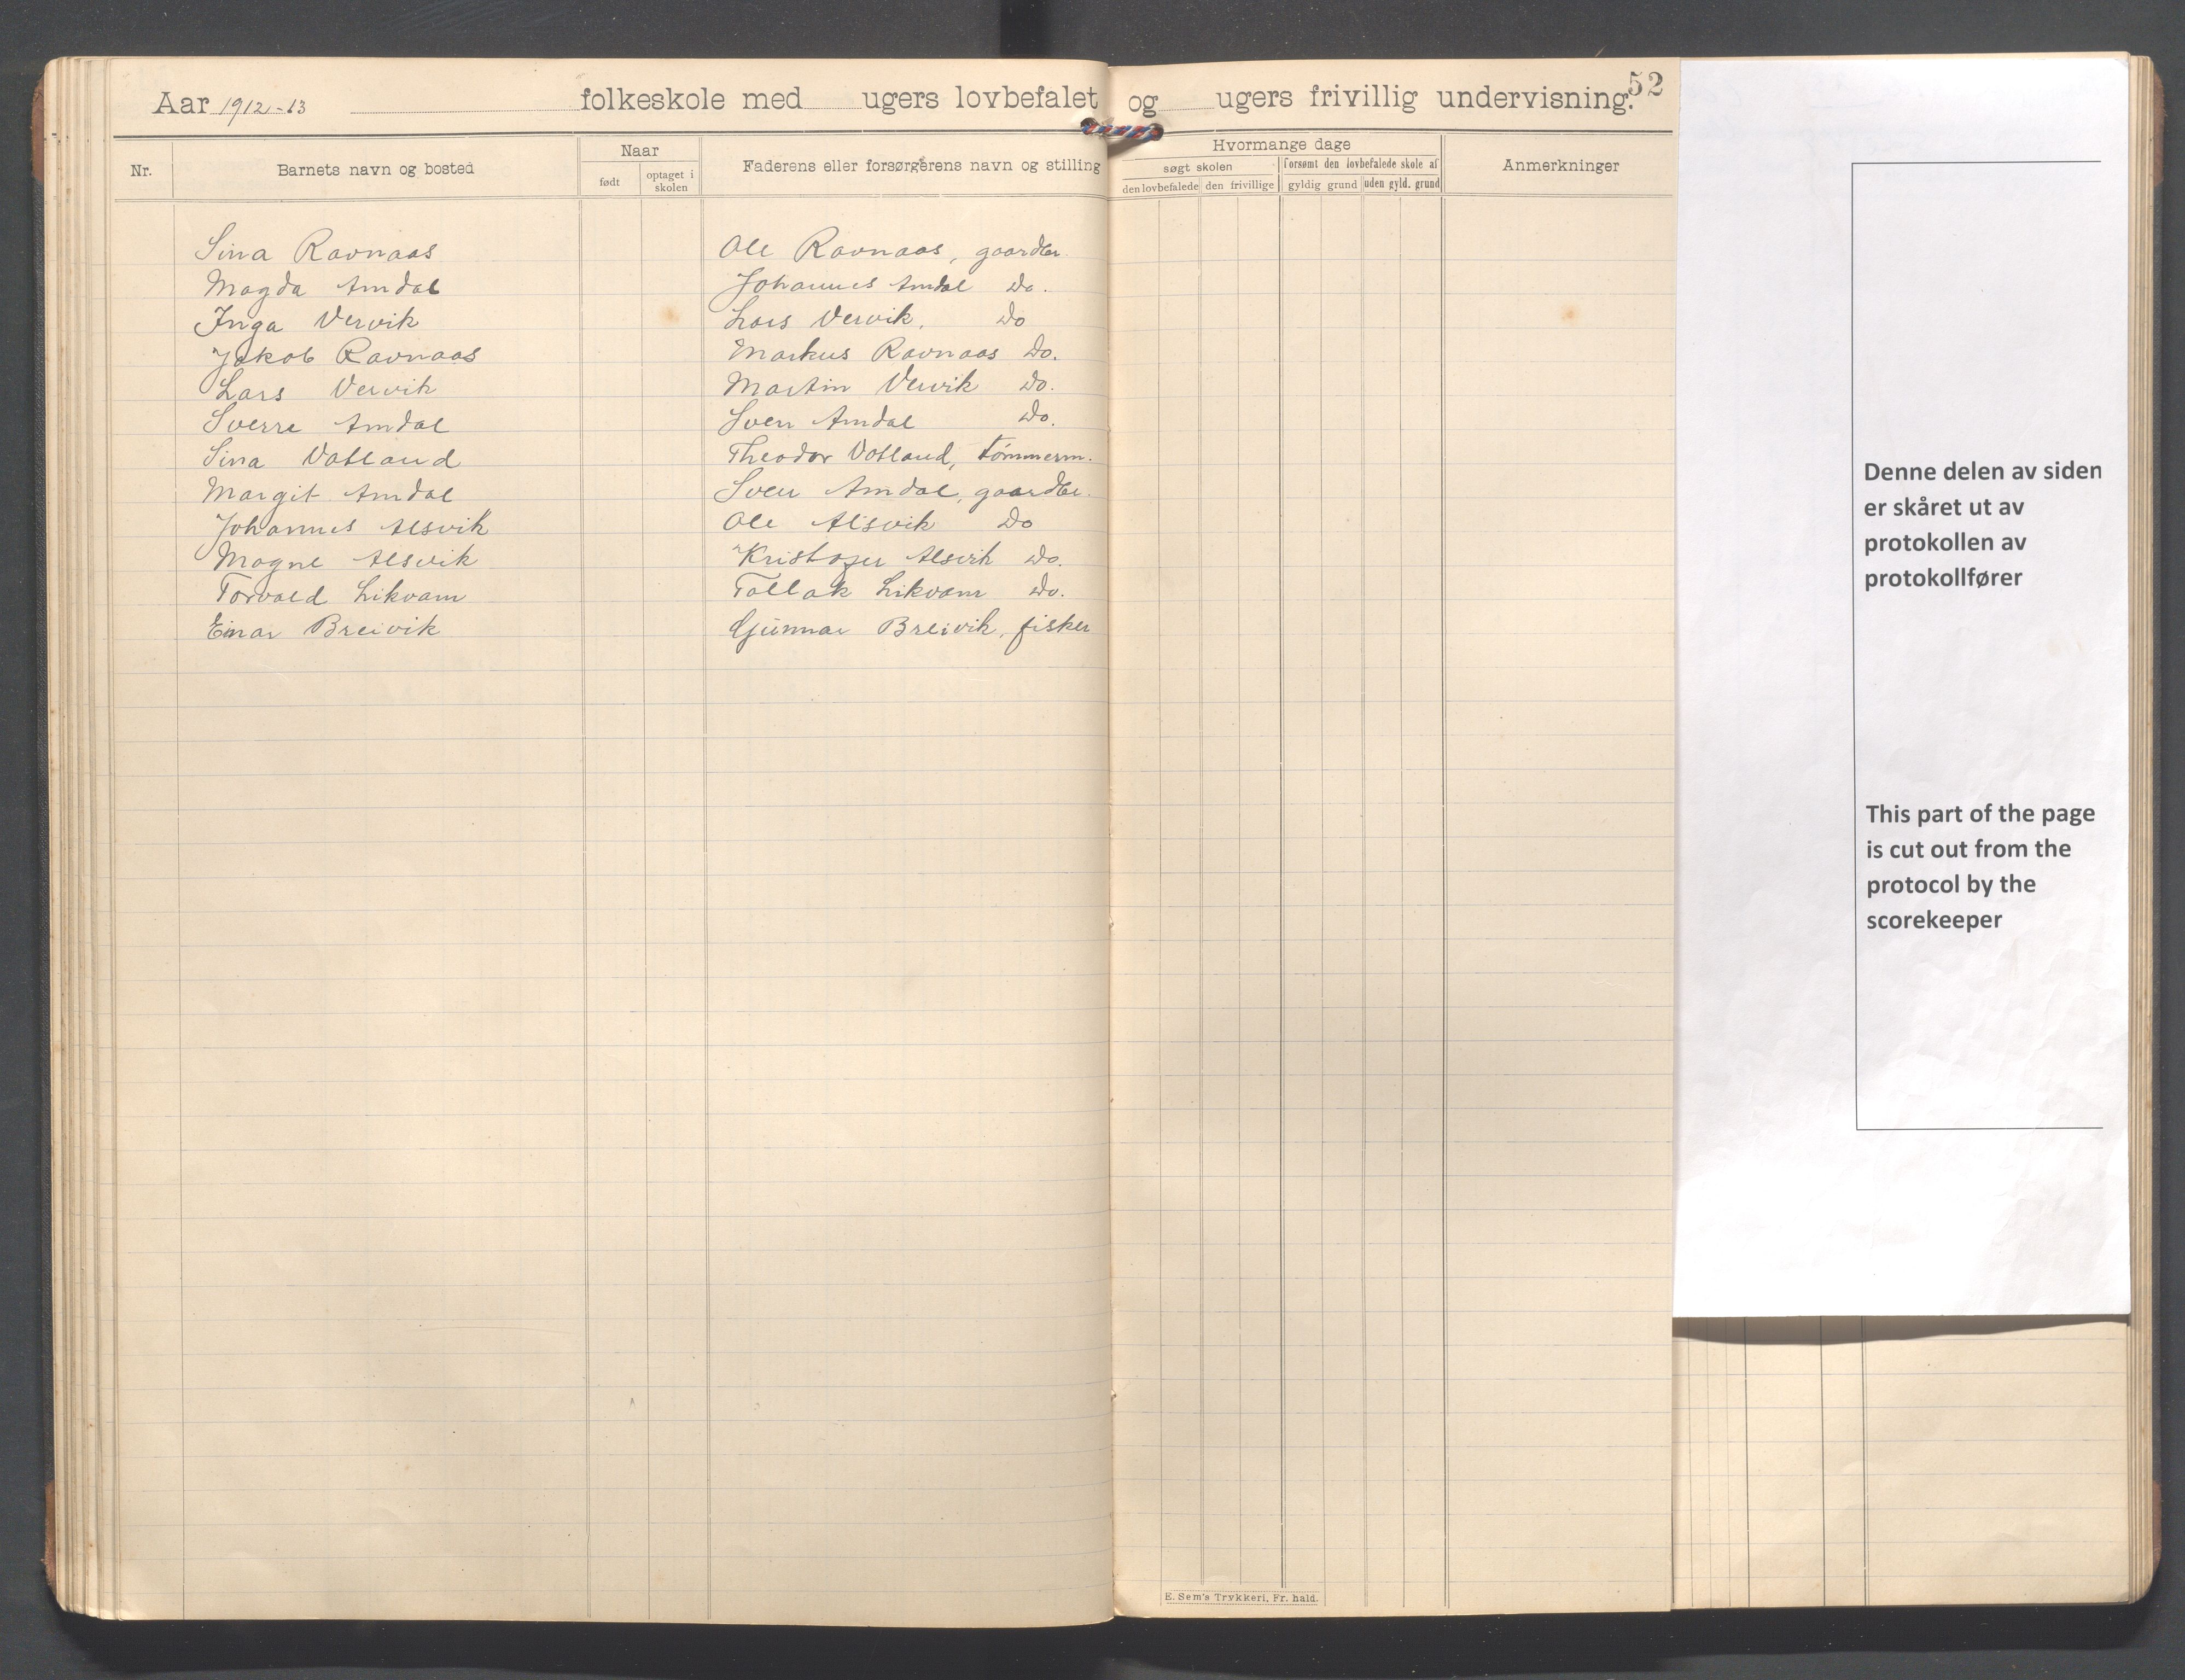 52
Aar 1912-13 folkeskole med ugers lovbefalet og ugers frivillig undervisning.
Nr. Barnets navn og bosted Naar født optaget i skolen Faderens eller forsørgerens navn og stilling Hvormange dage søgt skolen den lovbefalede den frivillige forsømt den lovbefalede skole af gyldig grund uden gyld. grund Anmerkninger
Sina Ravnaas Ole Ravnaas, gaardbr.
Magda Amdal Johannes Amdal Do.
Inga Vervik Lars Vervik, Do
Jakob Ravnaas Markus Ravnaas Do.
Lars Vervik Martin Vervik Do.
Sverre Amdal Sven Amdal Do.
Sina Vatland Theodor Vatland, tømmerm.
Margit Amdal Sven Amdal, gaardbr.
Johannes Alsvik Ole Alsvik Do
Magne Alsvik Kristofer Alsvik Do.
Torvald Likvam Tollak Likvam Do.
Einar Breivik Gunnar Breivik, fisker
E. Sem's Trykkeri, Fr. hald.
Denne delen av siden
er skåret ut av
protokollen av
protokollfører
This part of the page
is cut out from the
protocol by the
scorekeeper